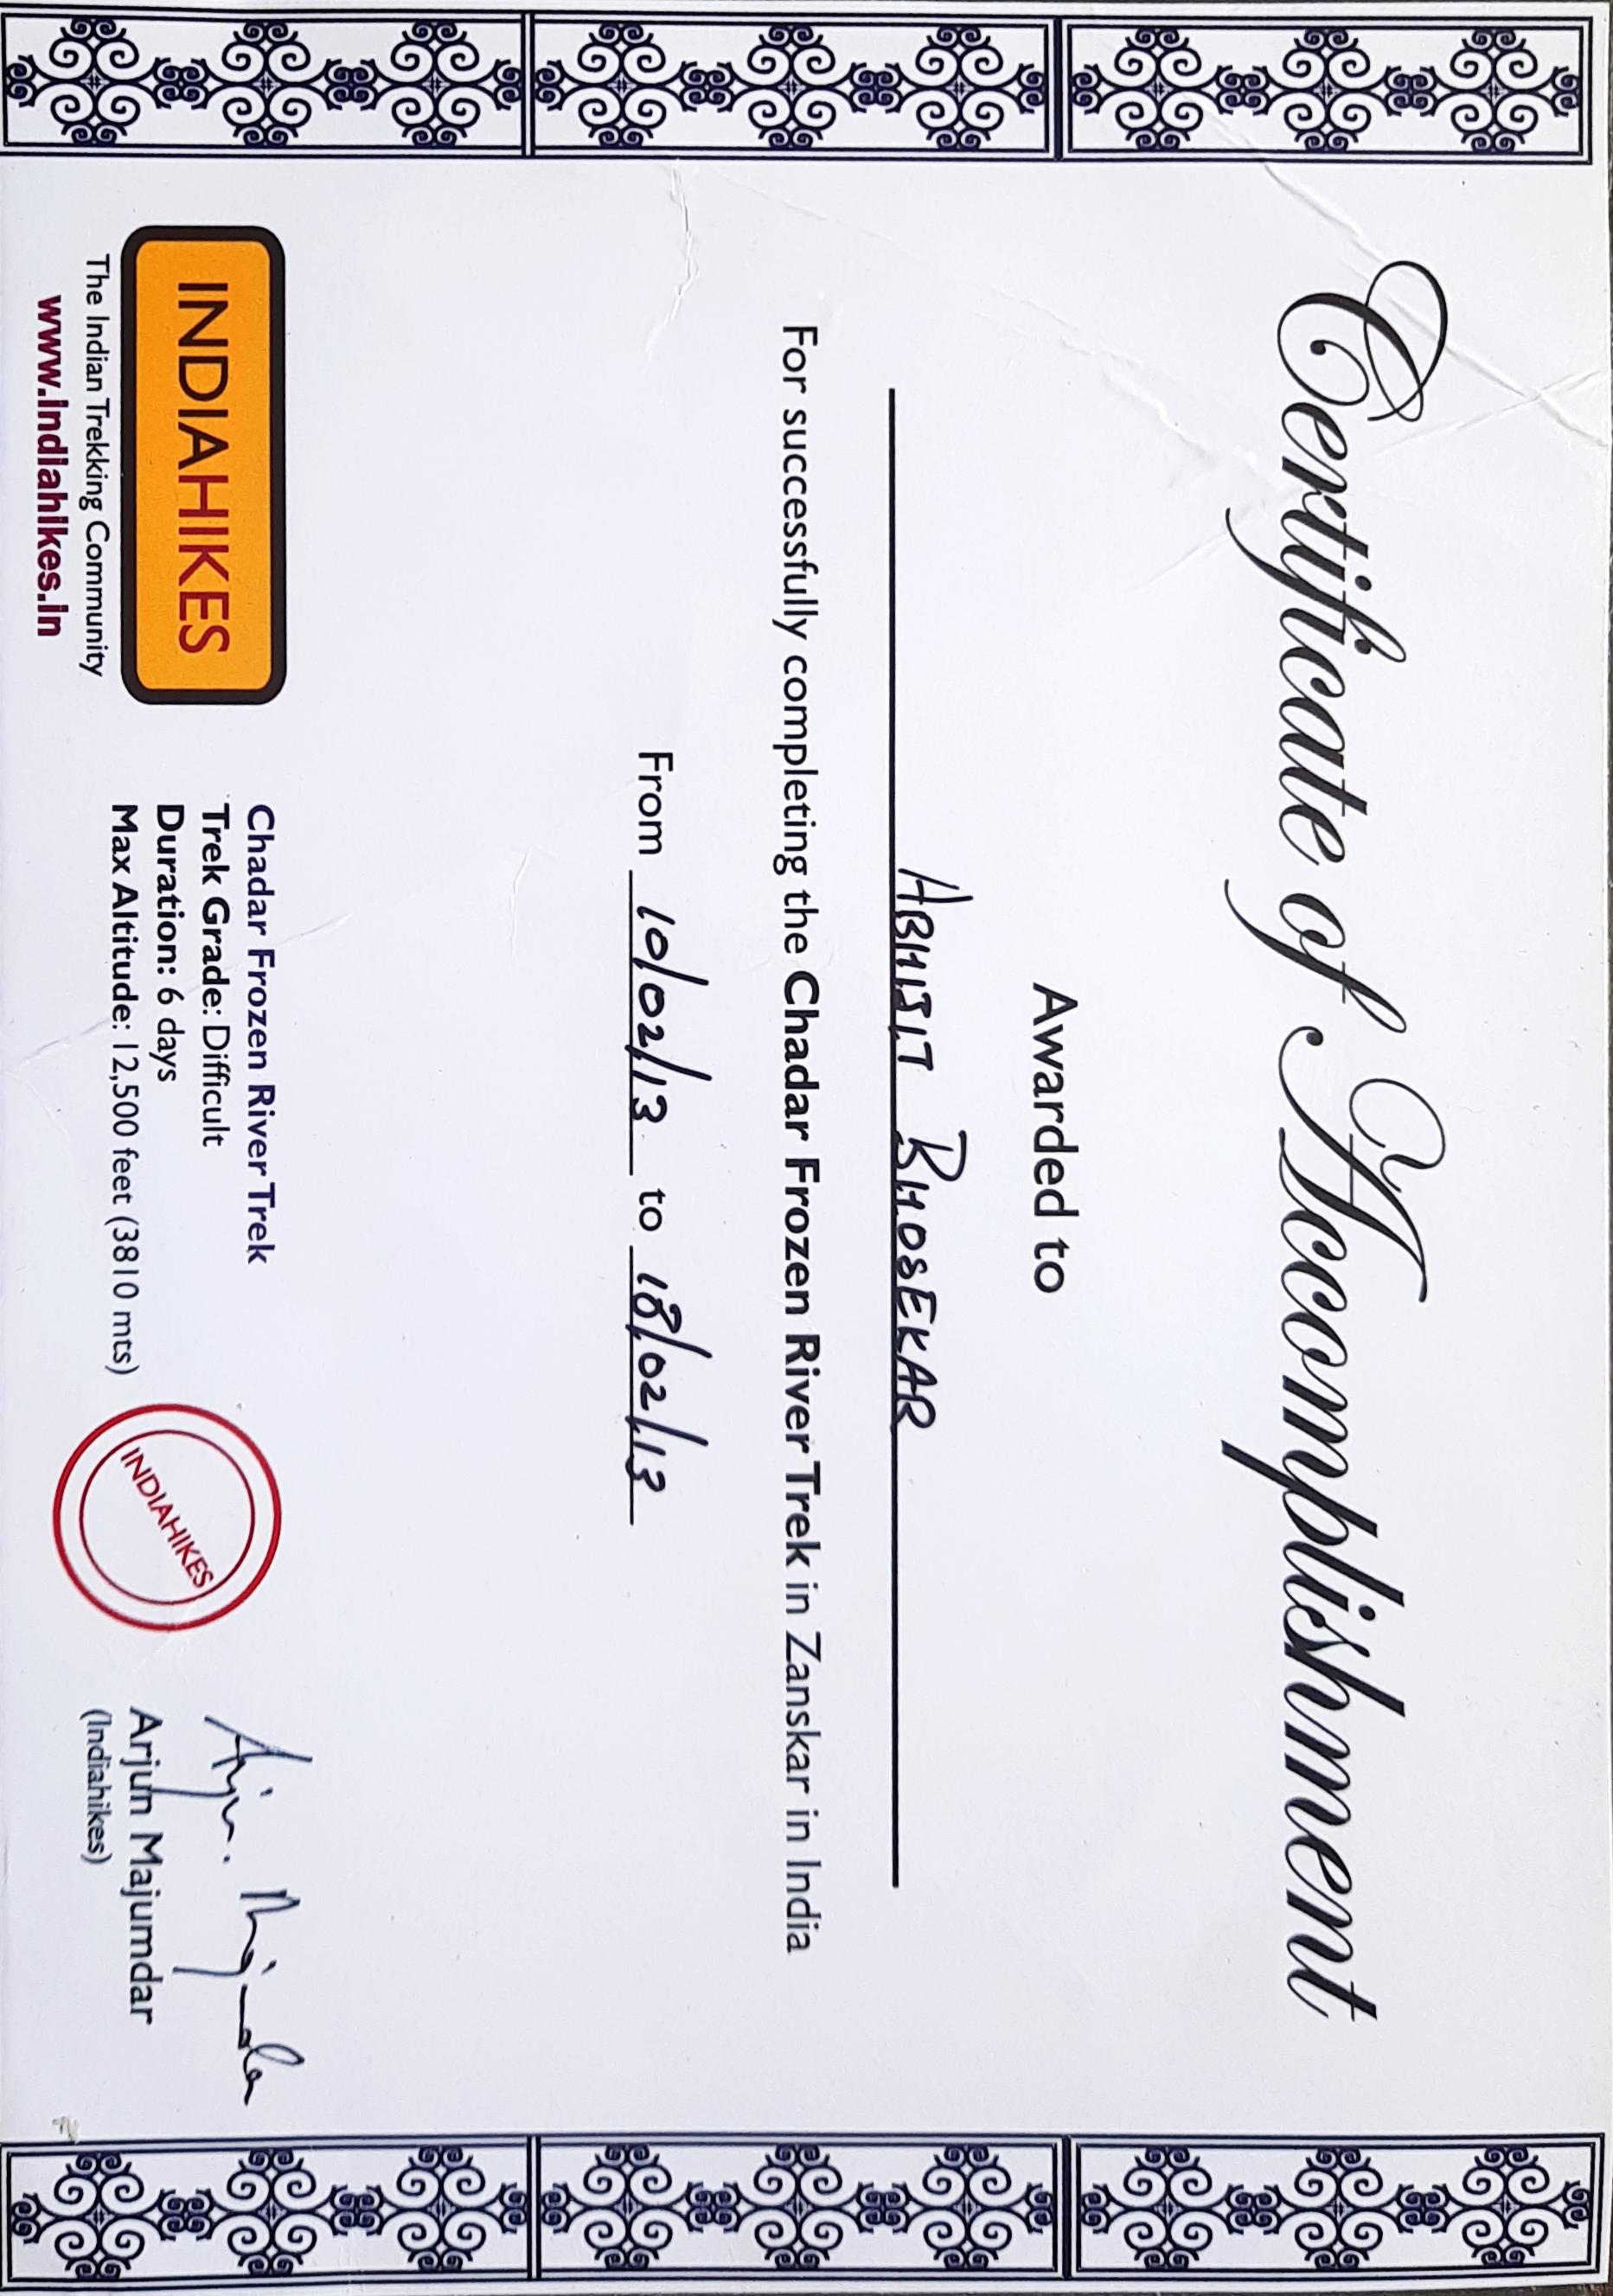 Certificate of Accomplishment
Awarded to
ABHIJIT BHOSEKAR
For successfully completing the Chadar Frozen River Trek in Zanskar in India
From 10/02/13 to 18/02/13
INDIAHIKES
The Indian Trekking Community
www.indiahikes.in
Chadar Frozen River Trek
Trek Grade: Difficult
Duration: 6 days
Max Altitude: 12,500 feet (3810 mts)
INDIAHIKES
Arjun Majumdar
Arjun Majumdar
(Indiahikes)